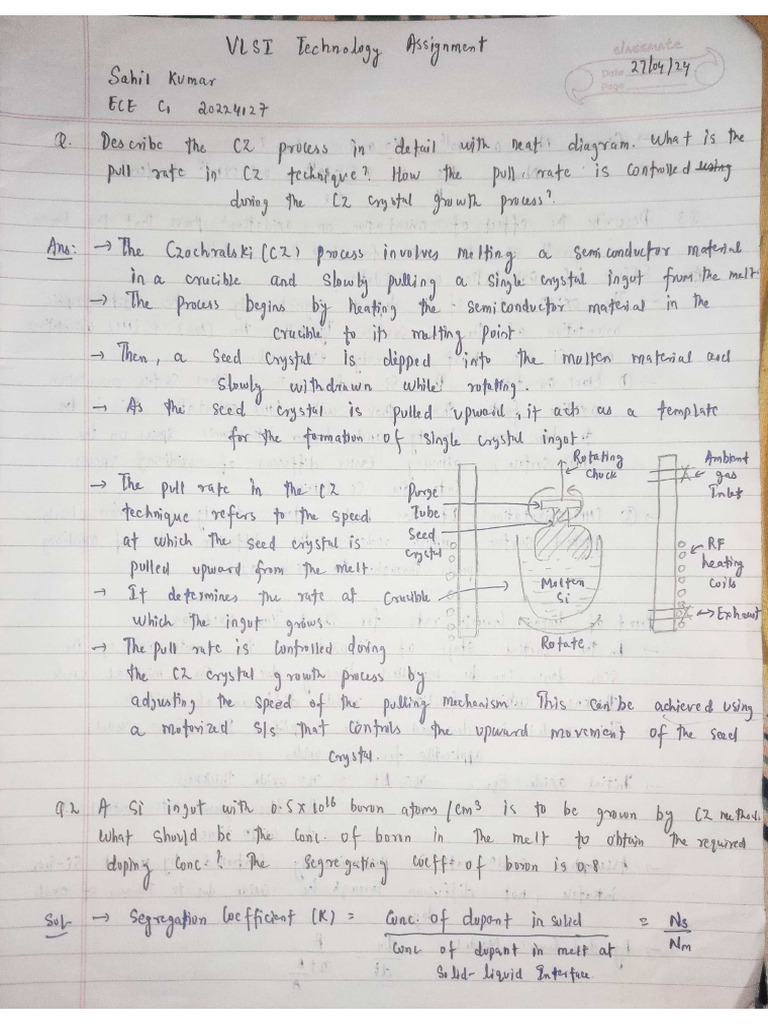 VLSI Technology Assignment
classmate
Date 27/04/24
Page
Sahil Kumar
ECE C1 20224127
Q. Describe the CZ process in detail with neat diagram. What is the
pull rate in CZ technique? How the pull rate is controlled using
during the CZ crystal growth process?
Ans: → The Czochralski (CZ) process involves melting a semiconductor material
in a crucible and slowly pulling a single crystal ingot from the melt
→ The process begins by heating the semiconductor material in the
crucible to its melting point
→ Then, a seed crystal is dipped into the molten material and
slowly withdrawn while rotating.
→ As the seed crystal is pulled upward, it acts as a template
for the formation of single crystal ingot.
→ The pull rate in the CZ
technique refers to the speed
at which the seed crystal is
pulled upward from the melt.
→ It determines the rate at
which the ingot grows.
→ The pull rate is controlled during
the CZ crystal growth process by
adjusting the speed of the pulling mechanism. This can be achieved using
a motorized S/s that controls the upward movement of the seed
crystal.
Rotating
Chuck
Ambient
gas
Inlet
Purge
Tube
Seed
crystal
Crucible
Molten
Si
Rotate
RF
heating
coils
Exhaust
Q.2 A Si ingot with 0.5 x 10^16 boron atoms/cm^3 is to be grown by CZ method.
What should be the conc. of boron in the melt to obtain the required
doping conc.? The segregating coeff. of boron is 0.8.
Sol- → Segregation Coefficient (K) = Conc. of dopant in solid = Ns
Conc. of dopant in melt at Nm
Solid-liquid Interface